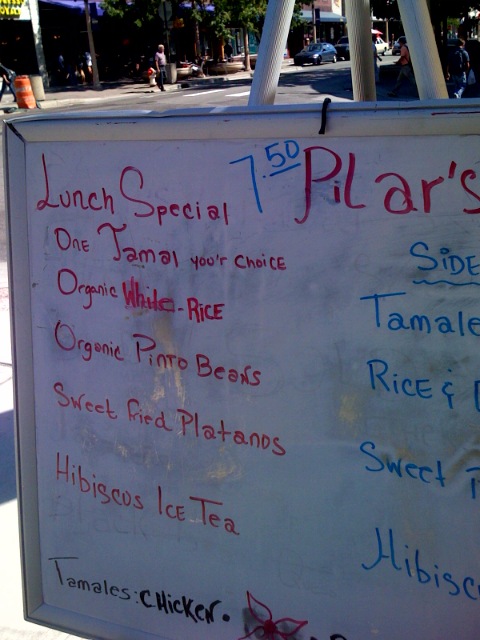 Lunch Special 7.50 Pilar's
One Tamal you'r choice
Organic White-Rice
Organic Pinto Beans
Sweet fried Platanos
Hibiscus Ice Tea
Tamales: Chicken.
Side
Tamale
Rice &
Sweet
Hibisc